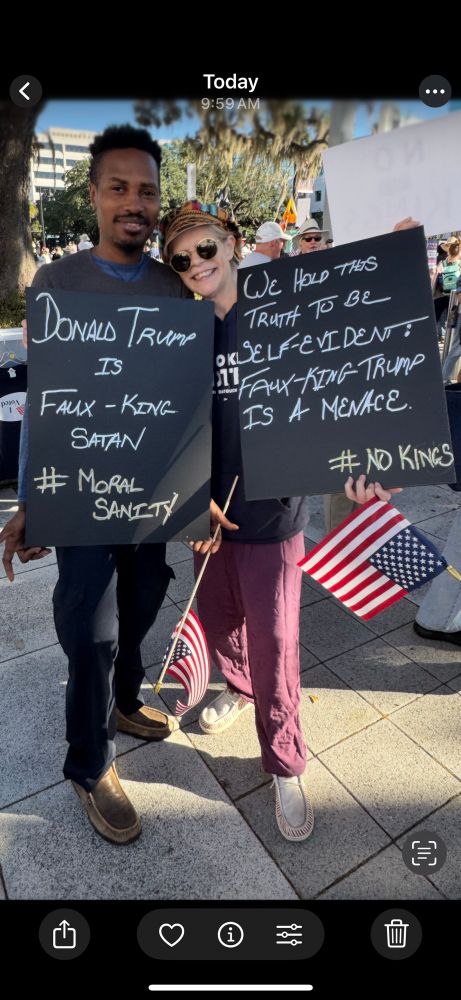 Today
9:59 AM
DONALD TRUMP
IS
FAUX-KING
SATAN
# MORAL
SANITY
WE HOLD THIS
TRUTH TO BE
SELF-EVIDENT:
FAUX-KING-TRUMP
IS A MENACE.
# NO KINGS